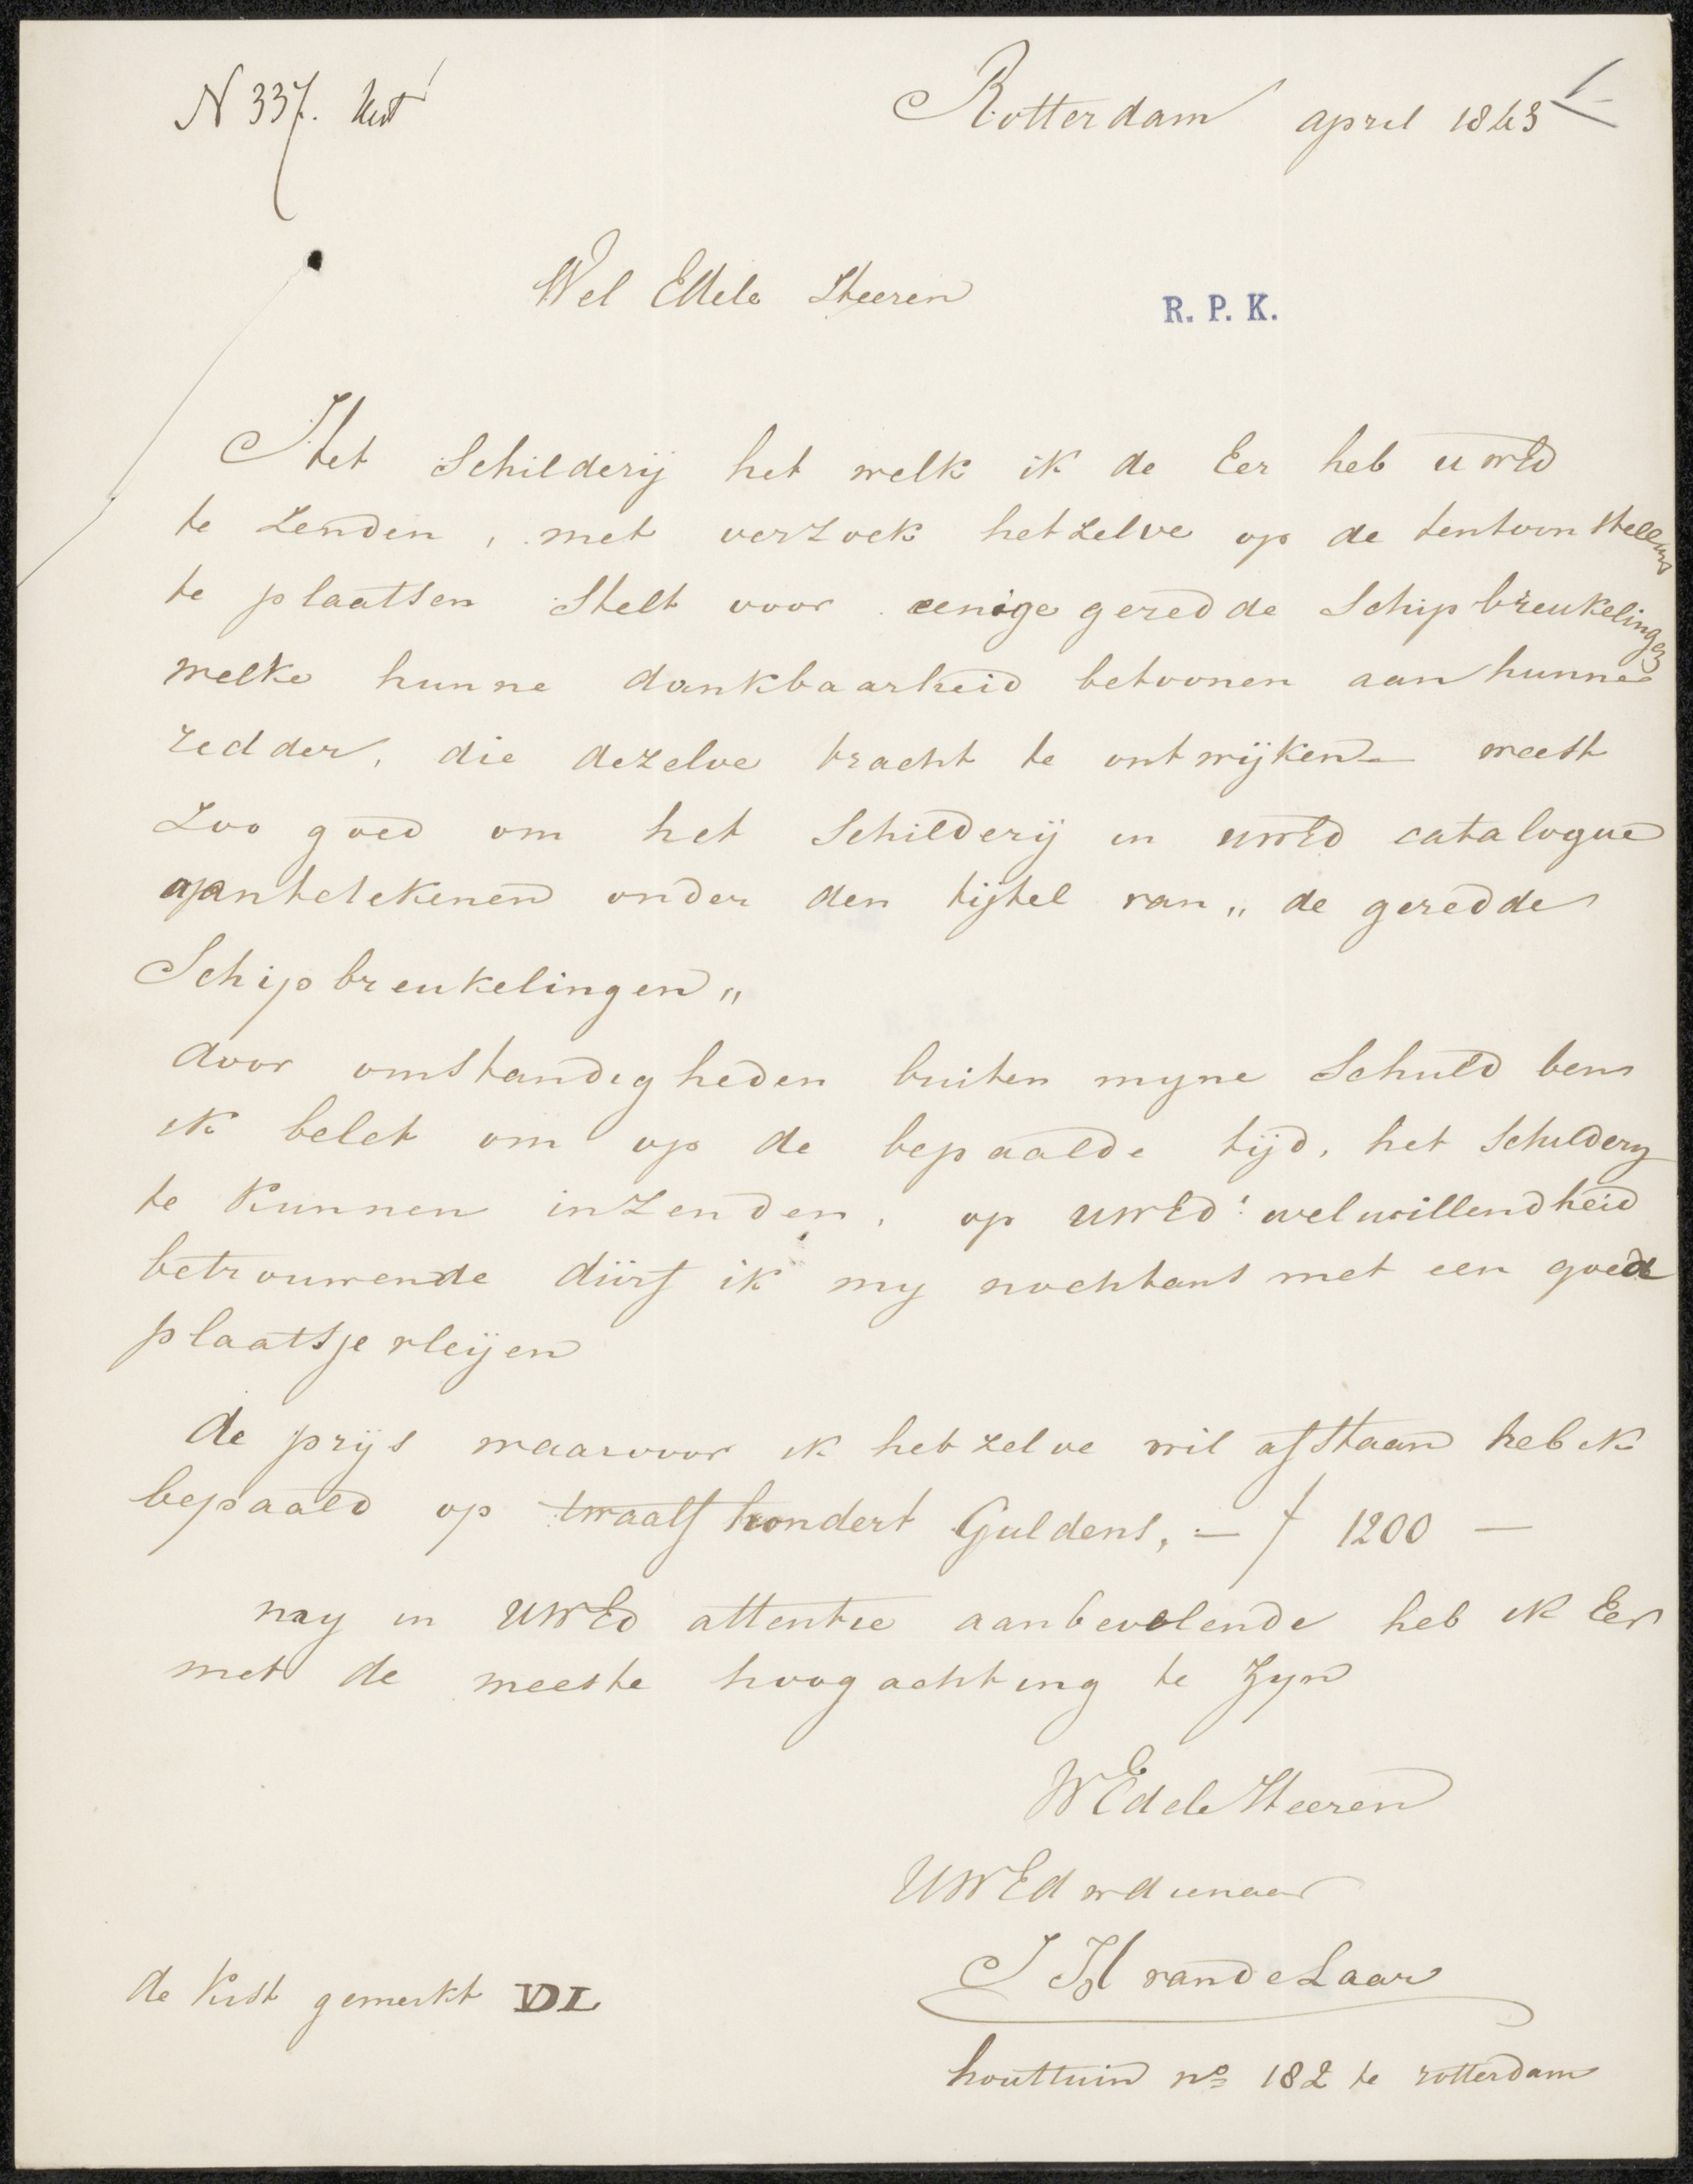 N 337. Kist
Rotterdam april 1843
Wel Edele Heeren
R. P. K.
Het Schilderij het welk ik de Eer heb uwEd
te zenden, met verzoek hetzelve op de tentoonstelling
te plaatsen stelt voor eenige geredde Schipbreukelingen
welke hunne dankbaarheid betoonen aan hunne
redder, die dezelve tracht te ontwijken – weest
zoo goed om het Schilderij in uwEd catalogue
aantetekenen onder den tijtel van „ de geredde
Schipbreukelingen „
door omstandigheden buiten myne Schuld ben
ik belet om op de bepaalde tijd, het Schildery
te kunnen inzenden, op UWEd: welwillendheid
betrouwende dürf ik my nochtans met een goed
plaatsje vleijen
de prijs waarvoor ik hetzelve wil afstaan heb ik
bepaald op twaalf hondert Guldens, – ƒ 1200 –
my in UWEd attentie aanbevelende heb ik Eer
met de meeste hoogachting te zyn
WEdele Heeren
UWEd w dienaar
J H van de Laar
de Kist gemerkt VDL
houttuin no 182 te rotterdam